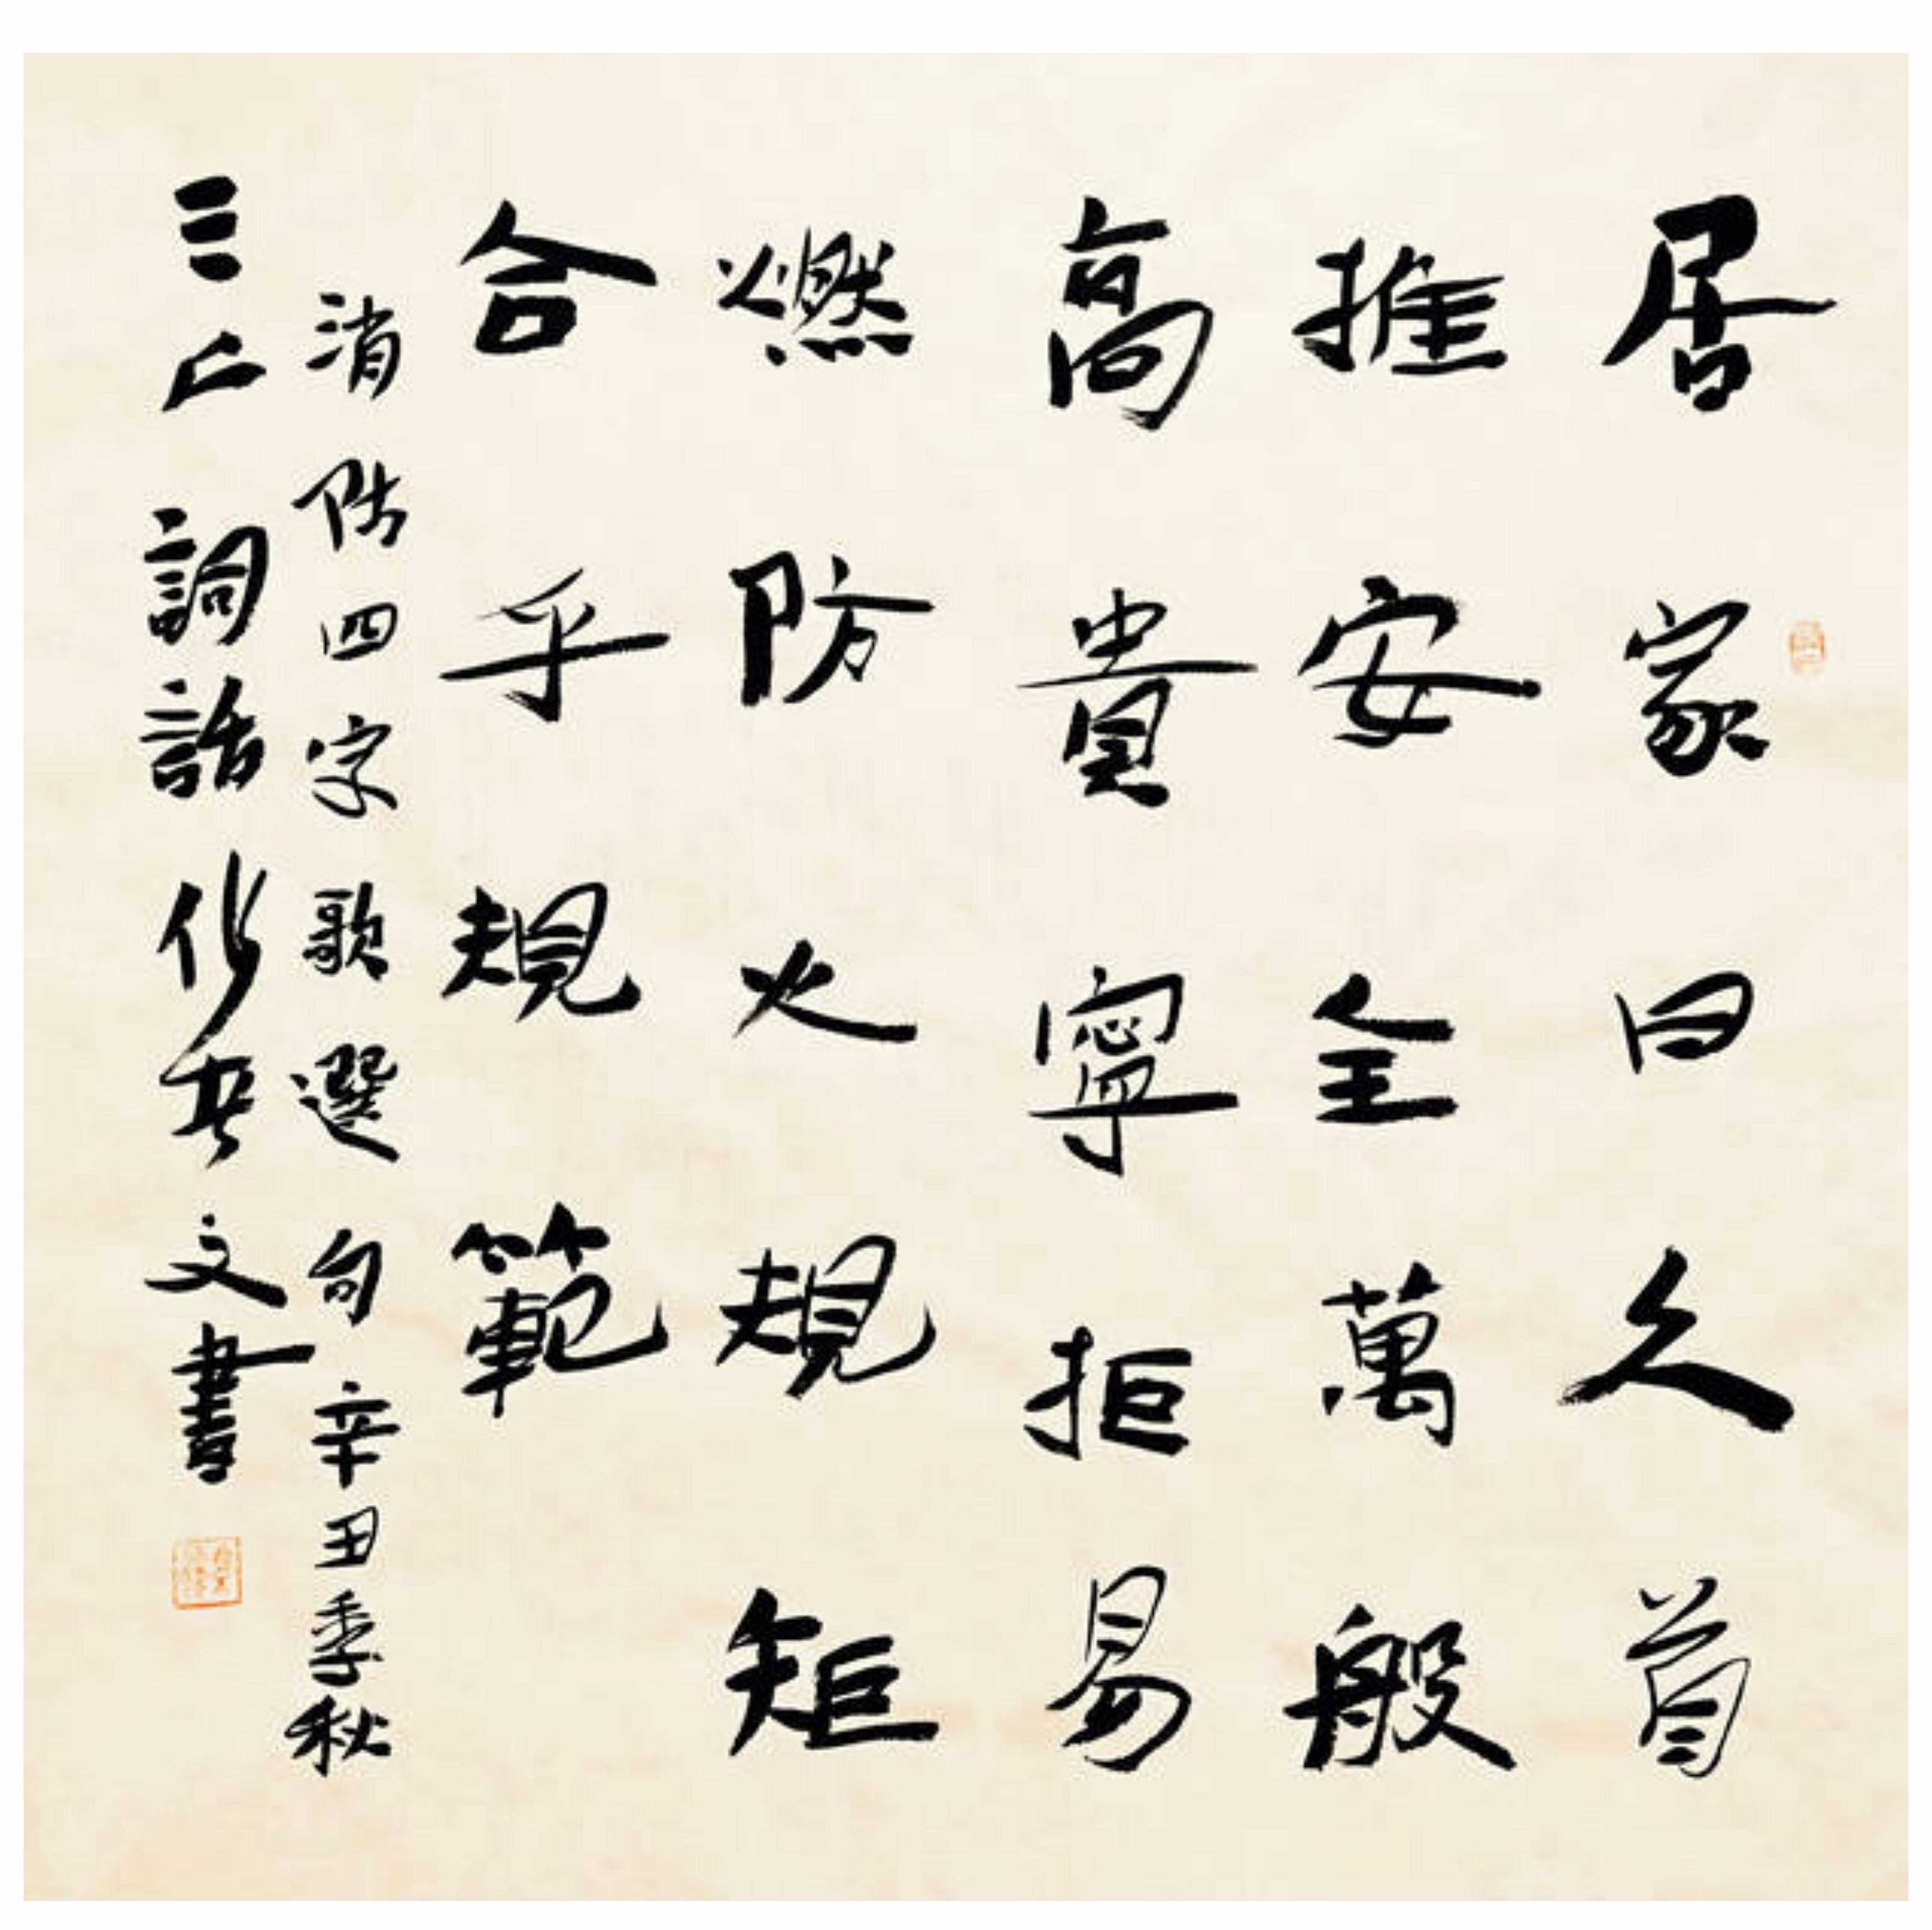 居家日久首
推安全萬般
高貴寧拒易
燃防火規矩
合乎規範
消防四字歌選句辛丑季秋
三詞話文書